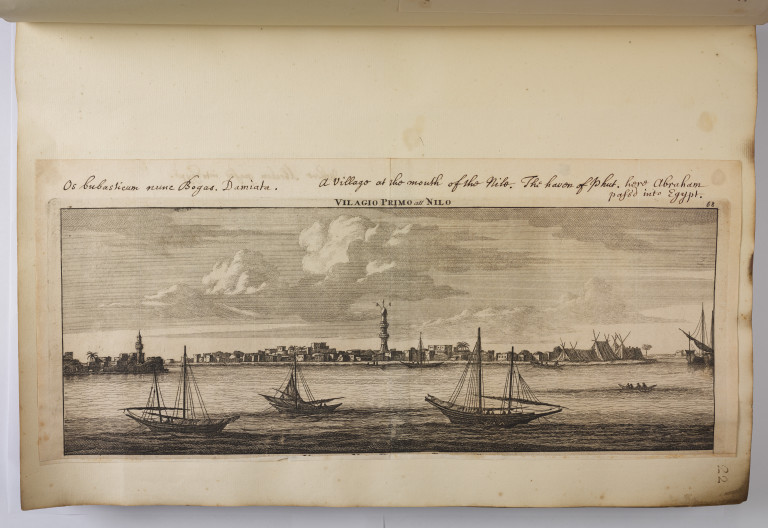 Os bubasticum nunc Bogas. Damiata. A Village at the mouth of the Nile. The haven of Phut. here Abraham
pass'd into Egypt.
VILAGIO PRIMO all NILO
88